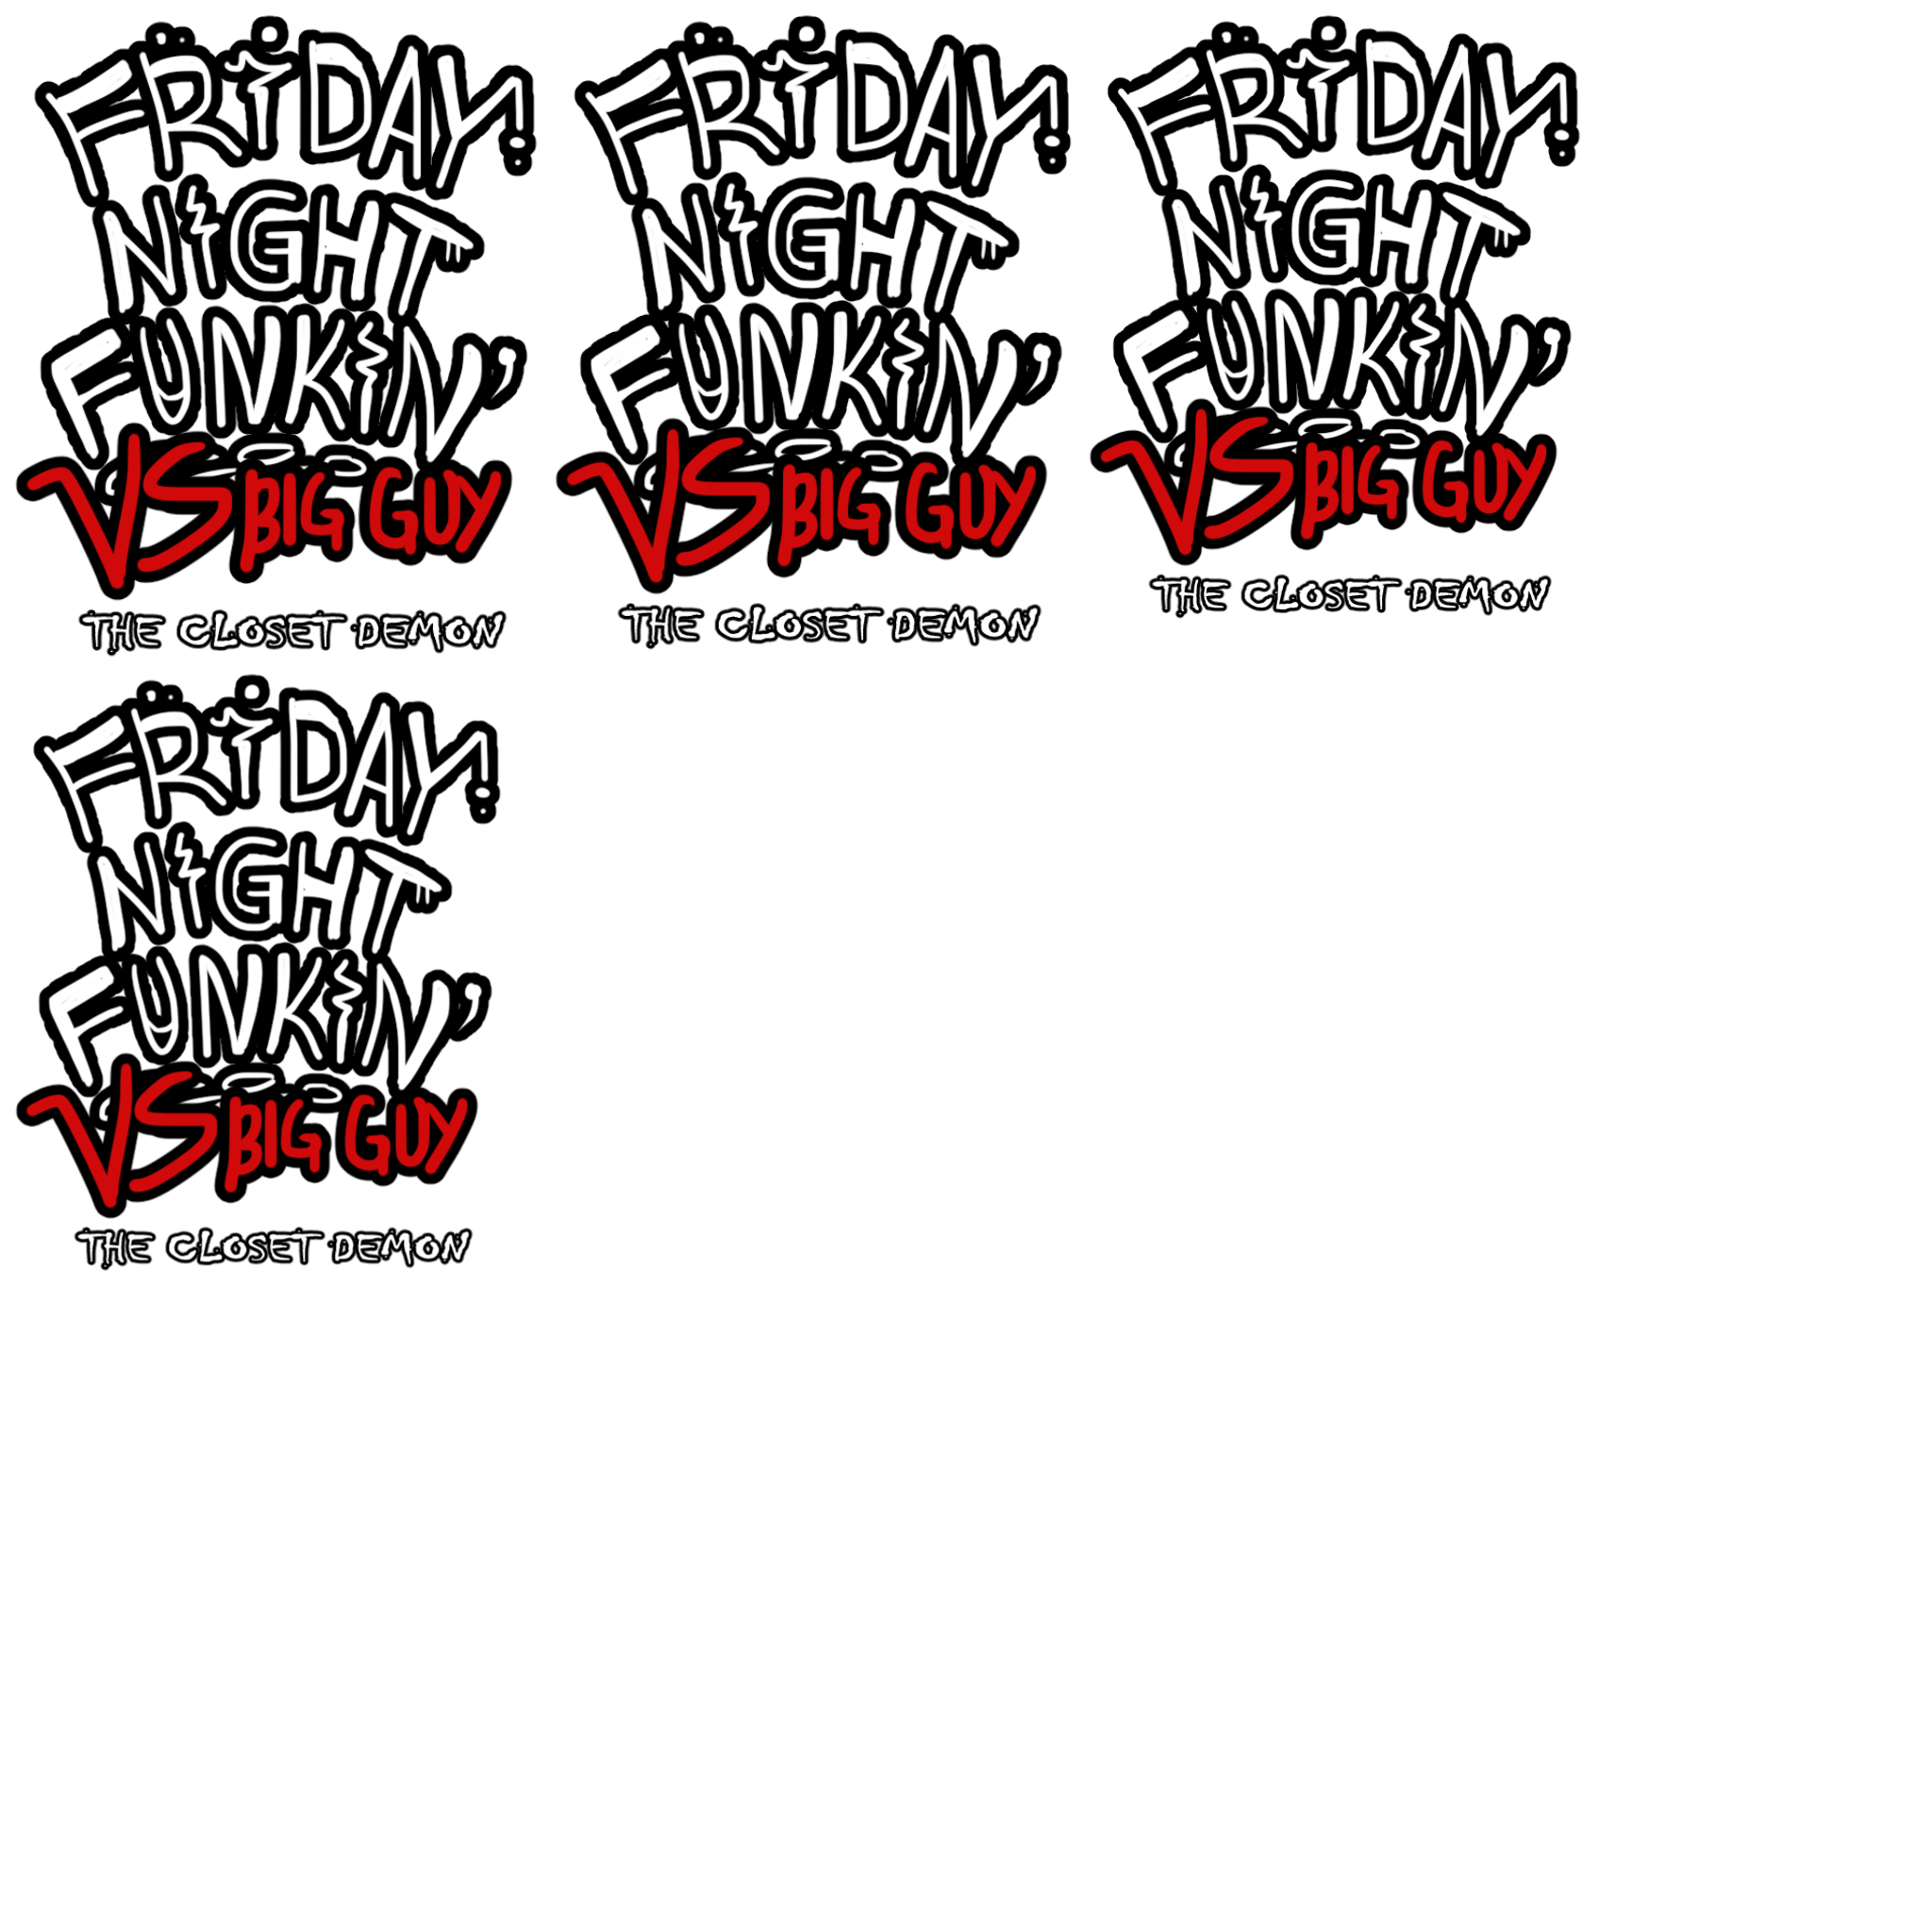 FRiDAY
NiGHT
FUNKiN'
VS BIG GUY
THE CLOSET DEMON
FRiDAY
NiGHT
FUNKiN'
VS BIG GUY
THE CLOSET DEMON
FRiDAY
NiGHT
FUNKiN'
VS BIG GUY
THE CLOSET DEMON
FRiDAY
NiGHT
FUNKiN'
VS BIG GUY
THE CLOSET DEMON